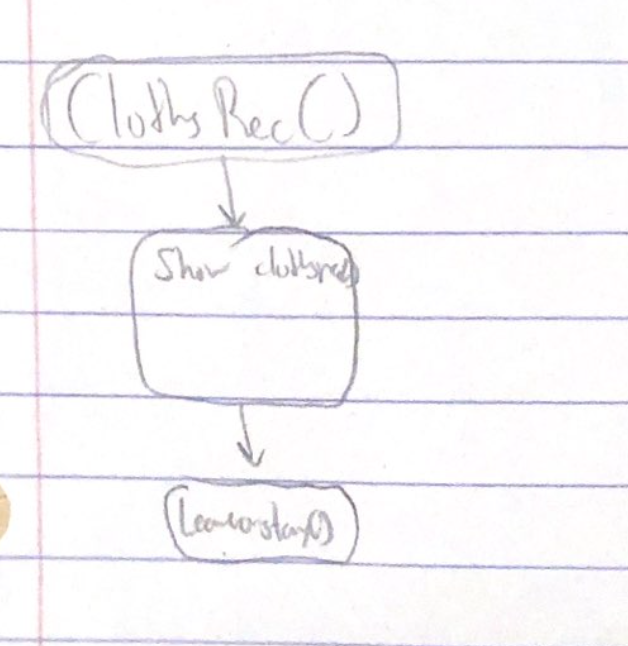 ClothsRec()
Show clothsrec()
Leaveorstay()